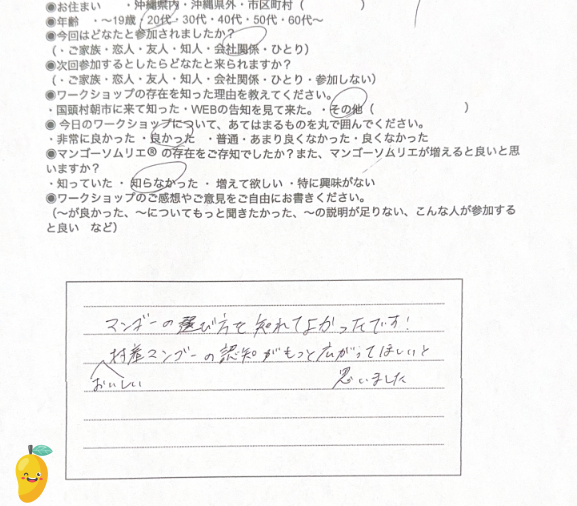 ●お住まい ・沖縄県内・沖縄県外・市区町村（ ）
●年齢 ・～19歳・20代・30代・40代・50代・60代～
●今回はどなたと参加されましたか？
（・ご家族・恋人・友人・知人・会社関係・ひとり）
●次回参加するとしたらどなたと来られますか？
（・ご家族・恋人・友人・知人・会社関係・ひとり・参加しない）
●ワークショップの存在を知った理由を教えてください。
・国頭村朝市に来て知った・WEBの告知を見て来た。・その他（ ）
● 今日のワークショップについて、あてはまるものを丸で囲んでください。
・非常に良かった・良かった ・普通・あまり良くなかった・良くなかった
●マンゴーソムリエ®の存在をご存知でしたか？また、マンゴーソムリエが増えると良いと思
いますか？
・知っていた・ 知らなかった ・ 増えて欲しい ・特に興味がない
●ワークショップのご感想やご意見をご自由にお書きください。
（～が良かった、～についてもっと聞きたかった、～の説明が足りない、こんな人が参加する
と良い など）
マンゴーの選び方を知れてよかったです！
村産マンゴーの認知がもっと広がってほしいと
おいしい 思いました